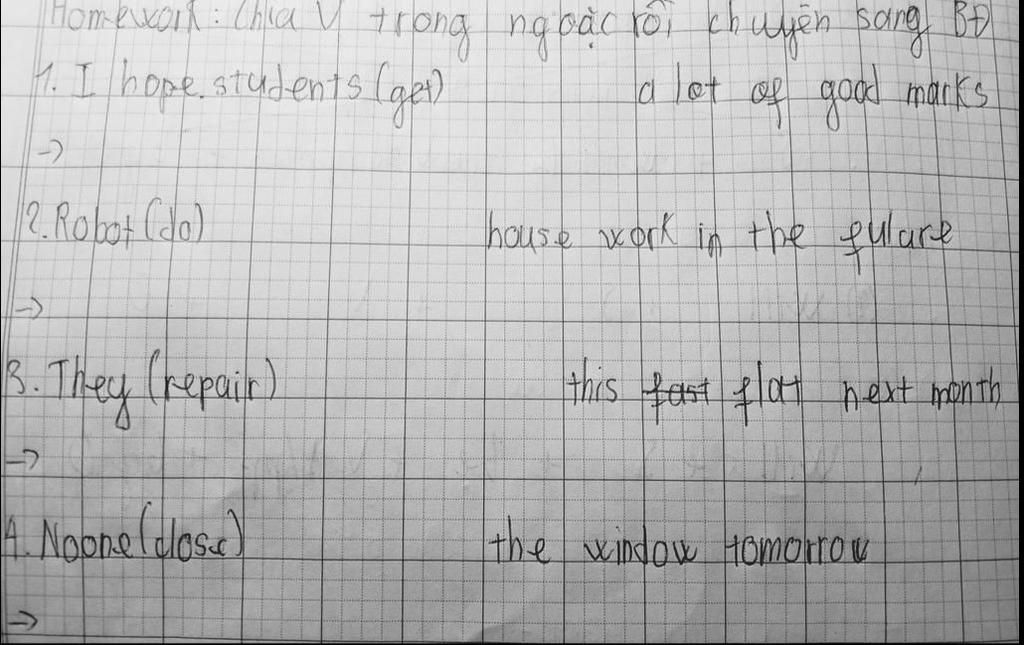 Homework: Chia V trong ngoặc rồi chuyển sang BĐ
1. I hope students (get) a lot of good marks
→
2. Robot (do) house work in the fulare
→
3. They (repair) this fast flat next month
→
4. Noone (close) the window tomorrow
→